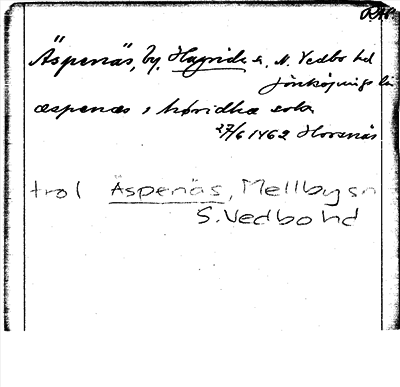 RAP.
Äspenäs, by, Hagride s. N. Vedbo hd
Jönköpings län
æspenæs i høridha sokn
27/6 1462 Horsnäs
trol Äspenäs, Mellby sn
S. Vedbo hd